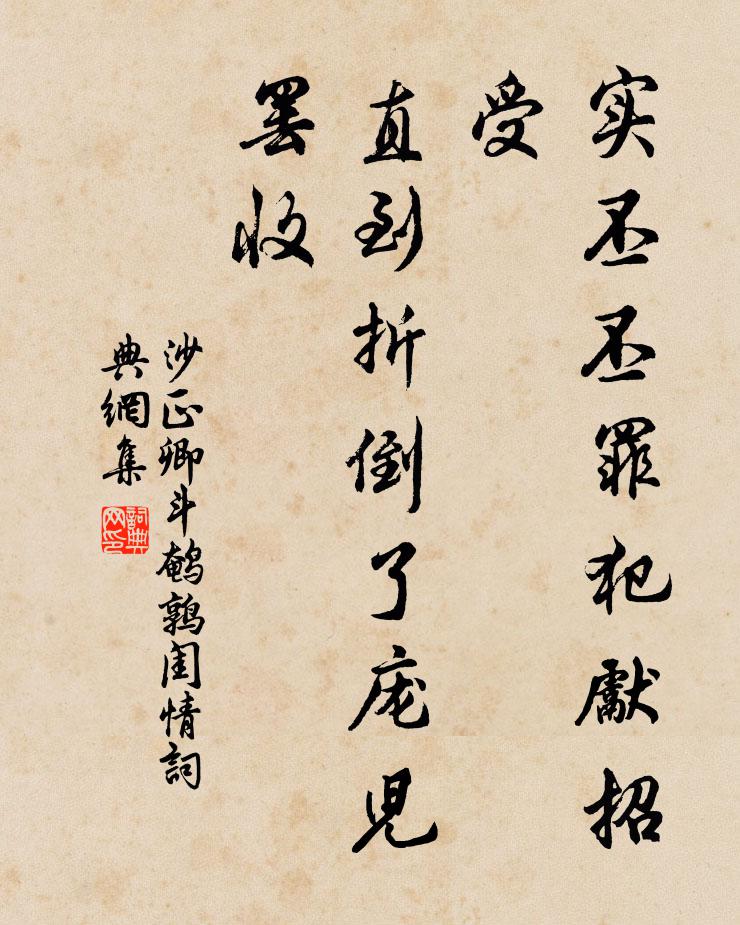 实丕丕罪犯献招
受
直到折倒了庞儿
罢收
沙正卿斗鹌鹑闺情词
典網集
詞典网印